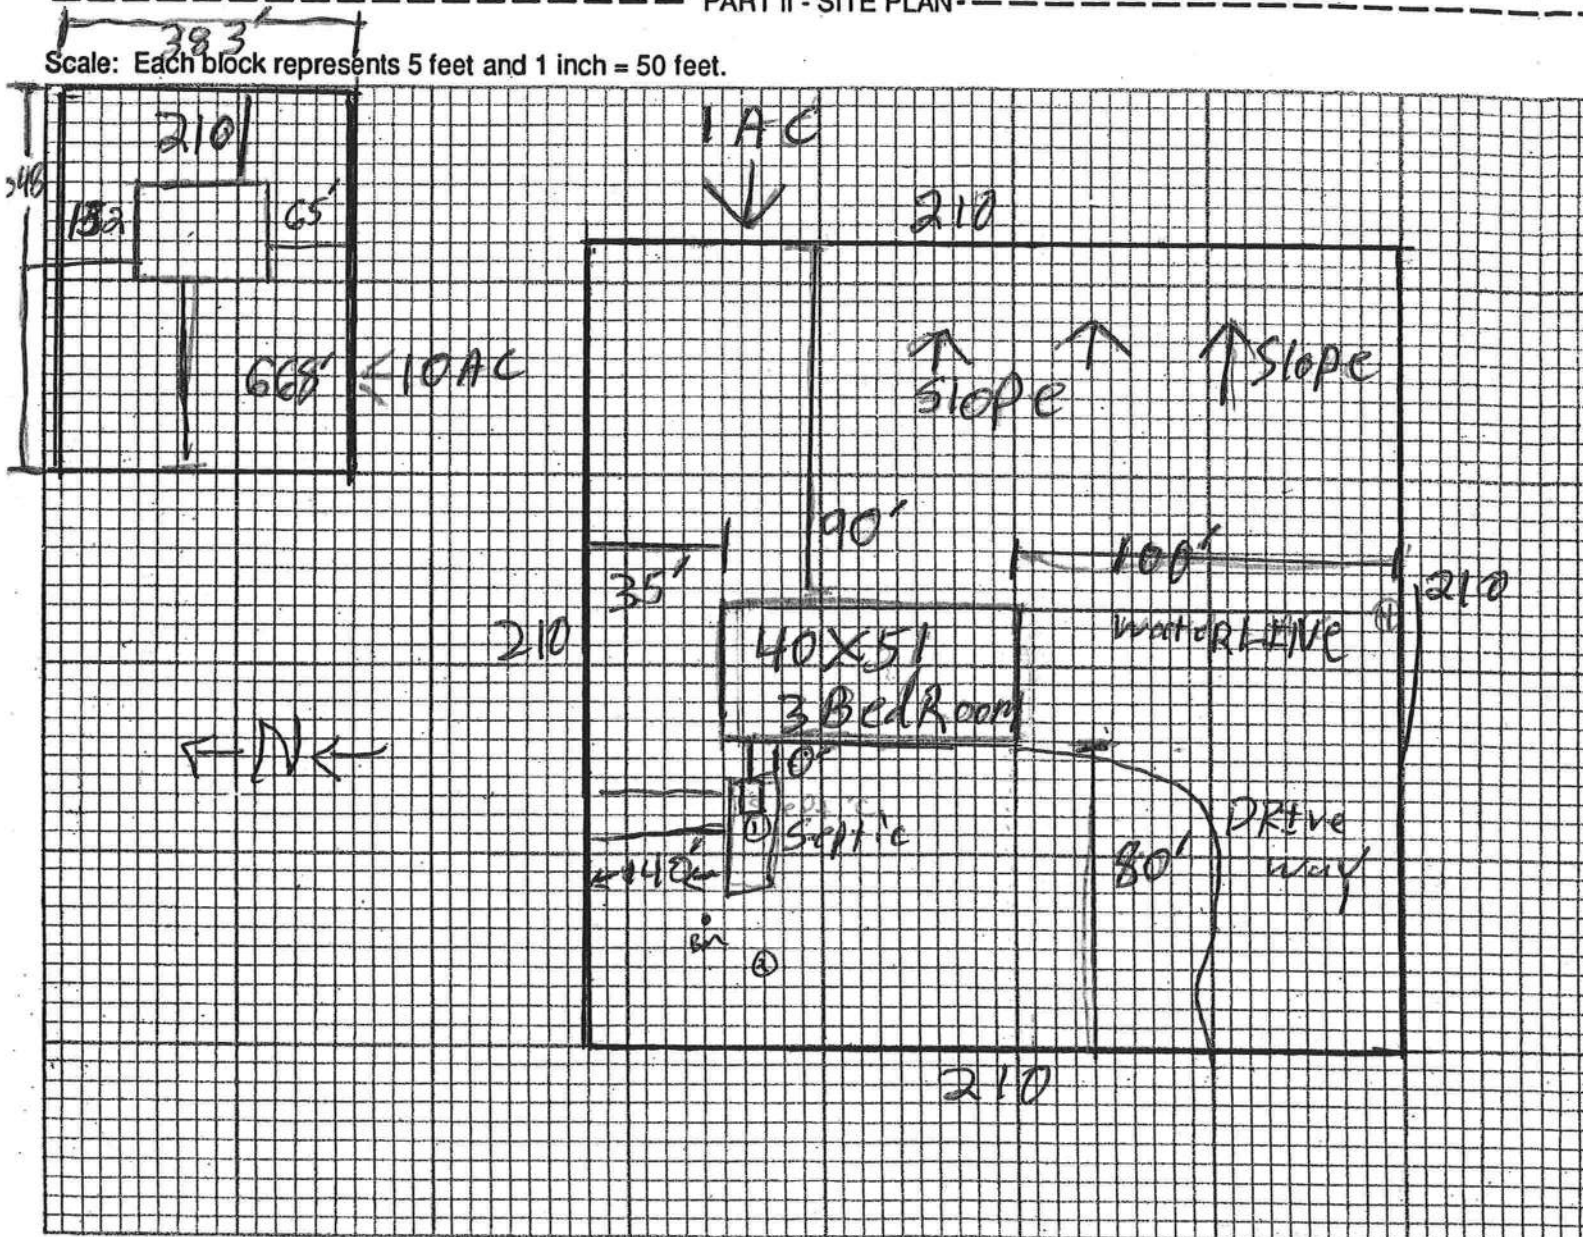 PART II - SITE PLAN
383'
Scale: Each block represents 5 feet and 1 inch = 50 feet.
210
1 AC
210
65'
668'
10 AC
Slope
Slope
90'
35'
100'
210
210
40X51
3 BedRoom
WateRLINe
N
10'
1
Septic
140'
80'
DRIve
Way
BM
2
210